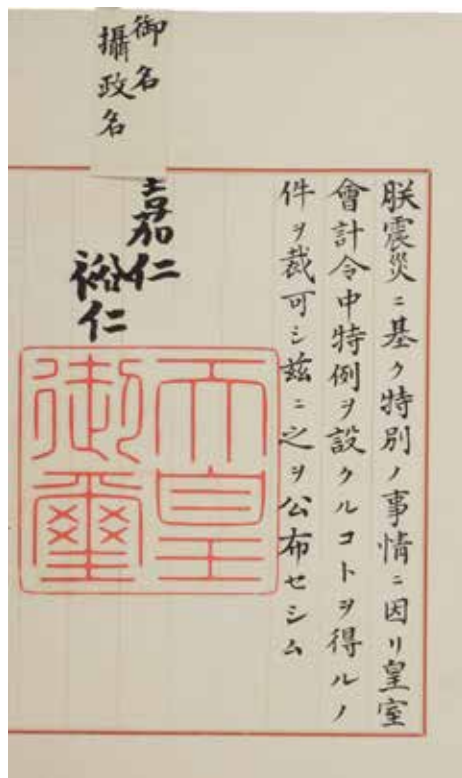 朕震災ニ基ク特別ノ事情ニ因リ皇室
會計令中特例ヲ設クルコトヲ得ルノ
件ヲ裁可シ茲ニ之ヲ公布セシム
御名
攝政名
嘉仁
裕仁
天皇
御璽